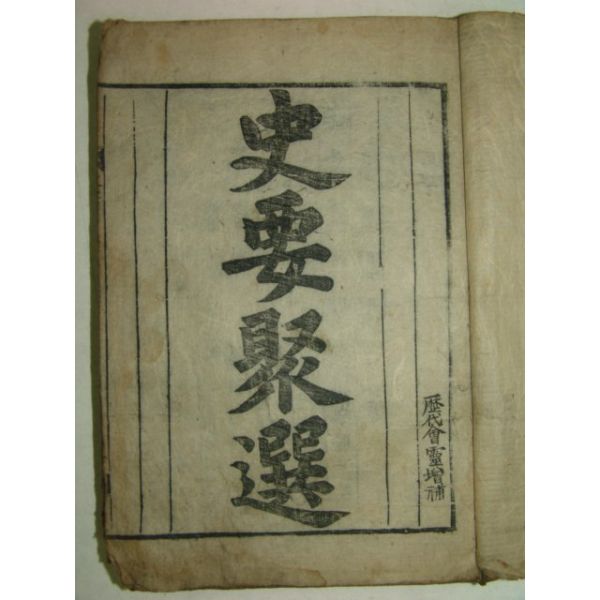 歷代會靈增補
史要聚選